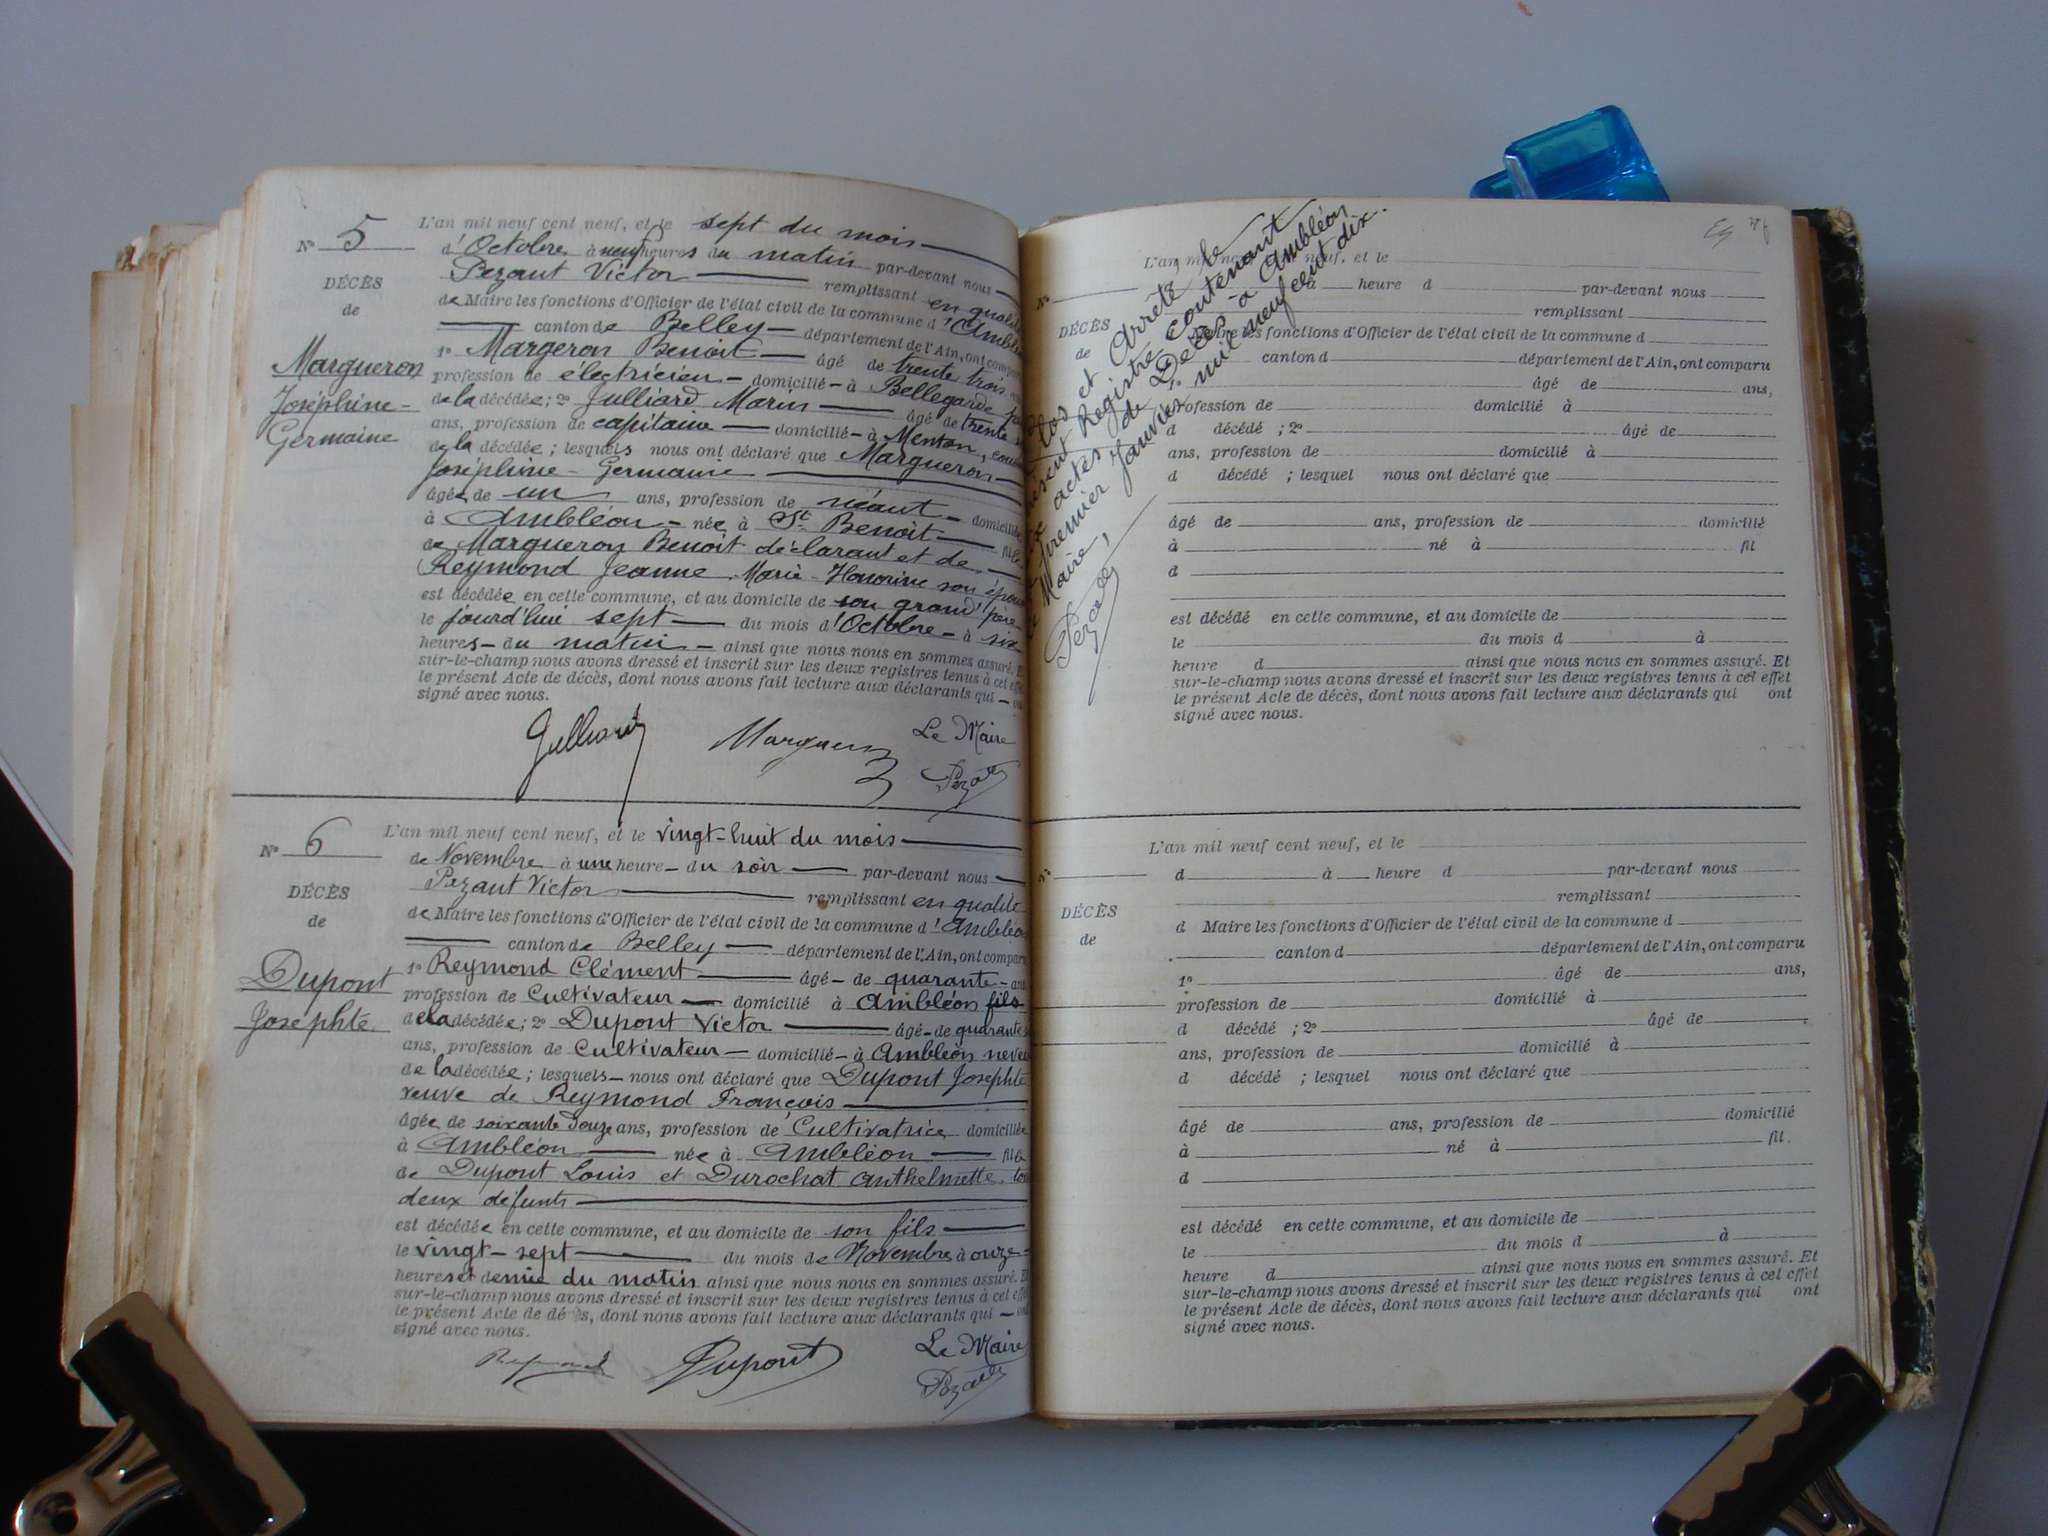 L'an mil neuf cent neuf, et le sept du mois
No 5
d'Octobre à neuf heures du matin par-devant nous
DÉCÈS
Pezant Victor remplissant en qualité
de
de Maire les fonctions d'Officier de l'état civil de la commune d'Ambléon
canton de Belley département de l'Ain, ont comparu
Margueron
1º Margeron Benoit âgé de trente trois
Joséphine-
profession de électricien domicilié à Bellegarde
Germaine
de la décédée; 2º Julliard Marin âgé de trente
ans, profession de capitaine domicilié à Menton,
de la décédée; lesquels nous ont déclaré que Margueron
Joséphine-Germaine
âgée de un ans, profession de néant domiciliée
à Ambléon née à St Benoit fille
de Margueron Benoit déclarant et de
Reymond Jeanne Marie-Honorine son épouse
est décédée en cette commune, et au domicile de son grand'père
le jourd'hui sept du mois d'Octobre à six
heures du matin ainsi que nous nous en sommes assuré. Et
sur-le-champ nous avons dressé et inscrit sur les deux registres tenus à cet effet
le présent Acte de décès, dont nous avons fait lecture aux déclarants qui ont
signé avec nous.
Julliard Margueron Le Maire
Pezant
L'an mil neuf cent neuf, et le vingt-huit du mois
No 6
de Novembre à une heure du soir par-devant nous
DÉCÈS
Pezant Victor remplissant en qualité
de
de Maire les fonctions d'Officier de l'état civil de la commune d'Ambléon
canton de Belley département de l'Ain, ont comparu
Dupont
1º Reymond Clément âgé de quarante ans
Josephte
profession de Cultivateur domicilié à Ambléon fils
de la décédée; 2º Dupont Victor âgé de quarante
ans, profession de Cultivateur domicilié à Ambléon neveu
de la décédée; lesquels nous ont déclaré que Dupont Josephte
veuve de Reymond François
âgée de soixante douze ans, profession de Cultivatrice domiciliée
à Ambléon née à Ambléon fille
de Dupont Louis et Durochat Anthelmette tous
deux défunts
est décédée en cette commune, et au domicile de son fils
le vingt-sept du mois de Novembre à onze
heures et demie du matin ainsi que nous nous en sommes assuré. Et
sur-le-champ nous avons dressé et inscrit sur les deux registres tenus à cet effet
le présent Acte de décès, dont nous avons fait lecture aux déclarants qui ont
signé avec nous.
Reymond Dupont Le Maire
Pezant
Clos et Arrêté, le
présent Registre contenant
six actes de Décès à Ambléon
le premier Janvier mil neuf cent dix.
Le Maire,
Pezant
L'an mil neuf cent neuf, et le
No
à heure d par-devant nous
DÉCÈS
remplissant
de
d Maire les fonctions d'Officier de l'état civil de la commune d
canton d département de l'Ain, ont comparu
1º âgé de ans,
profession de domicilié à
d décédé ; 2º âgé de
ans, profession de domicilié à
d décédé ; lesquel nous ont déclaré que
âgé de ans, profession de domicilié
à né à fil
d
est décédé en cette commune, et au domicile de
le du mois d à
heure d ainsi que nous nous en sommes assuré. Et
sur-le-champ nous avons dressé et inscrit sur les deux registres tenus à cet effet
le présent Acte de décès, dont nous avons fait lecture aux déclarants qui ont
signé avec nous.
L'an mil neuf cent neuf, et le
No
d à heure d par-devant nous
remplissant
DÉCÈS
d Maire les fonctions d'Officier de l'état civil de la commune d
de
canton d département de l'Ain, ont comparu
1º âgé de ans,
profession de domicilié à
d décédé ; 2º âgé de
ans, profession de domicilié à
d décédé ; lesquel nous ont déclaré que
âgé de ans, profession de domicilié
à né à fil
d
est décédé en cette commune, et au domicile de
le du mois d à
heure d ainsi que nous nous en sommes assuré. Et
sur-le-champ nous avons dressé et inscrit sur les deux registres tenus à cet effet
le présent Acte de décès, dont nous avons fait lecture aux déclarants qui ont
signé avec nous.